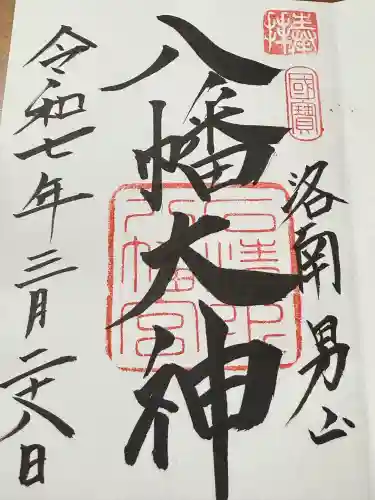 奉拝
國寶
洛南 男山
八幡大神
石清水
八幡宮
令和七年三月二十八日